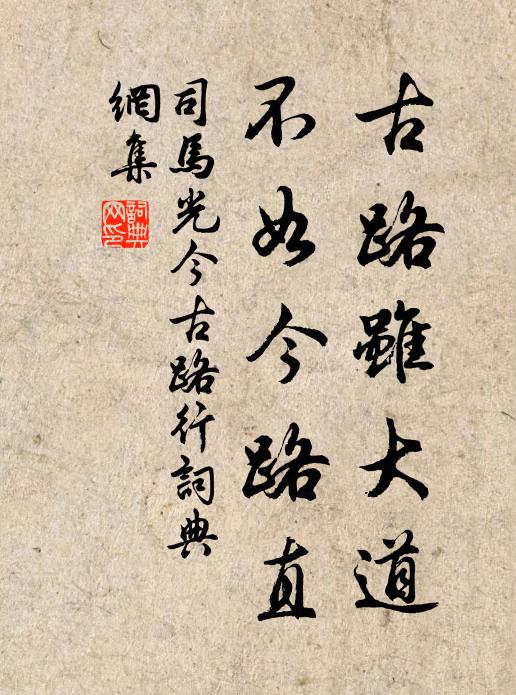 古路雖大道
不如今路直
司馬光今古路行詞典
網集
詞典
网印